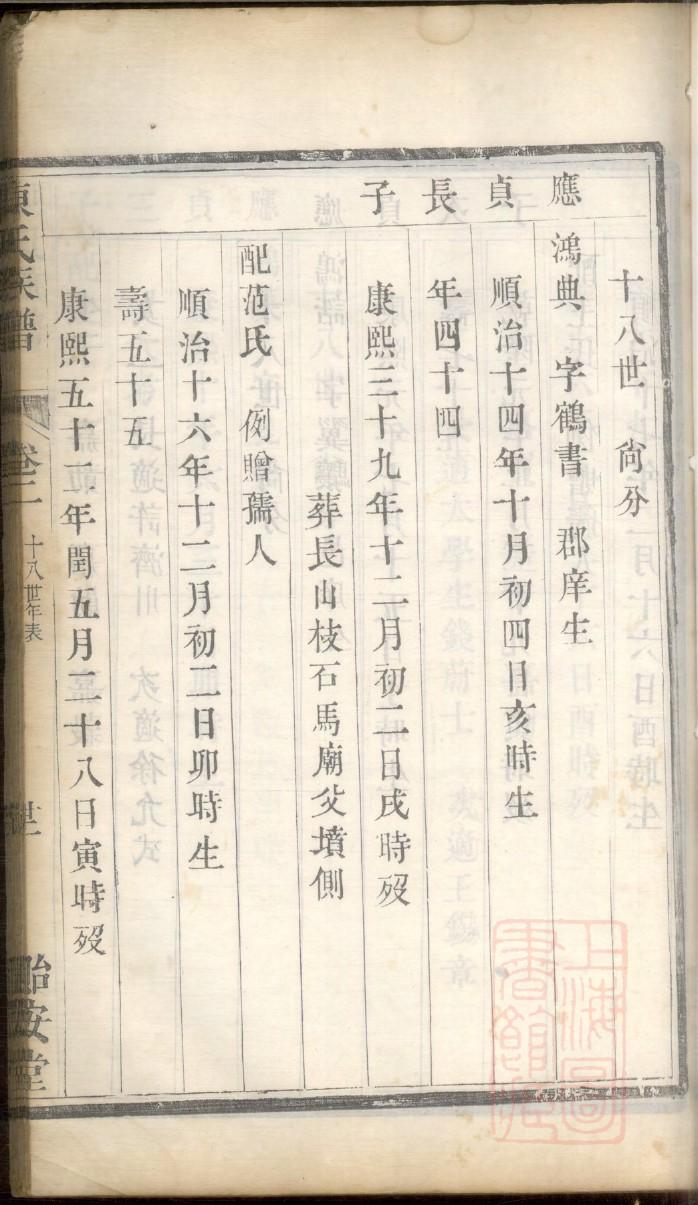 應貞長子
十八世　尙分
鴻典　字鶴書　郡庠生
順治十四年十月初四日亥時生
年四十四
康熙三十九年十二月初二日戌時歿
葬長山枝石馬廟父墳側
配范氏　例贈孺人
順治十六年十二月初三日卯時生
壽五十五
康熙五十二年閏五月二十八日寅時歿
陳氏族譜　卷二　十八世年表　世　貽安堂
上海圖書館藏